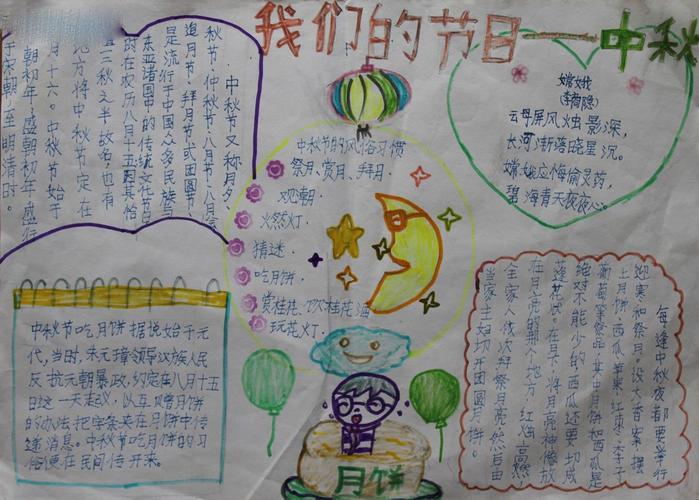 我们的节日——中秋
中秋节又称月夕、
秋节、仲秋节、八月节、八月会、
追月节、拜月节或团圆节、
是流行于中国众多民族与
东亚诸国中的传统文化节日
时在农历八月十五因其恰
值三秋之半故名。也有
地方将中秋节定在
月十六。中秋节始于
朝初年,盛朝初年,盛行
于宋朝,至明清时。
中秋节的风俗习惯
祭月、赏月、拜月.
观潮.
火然灯.
猜迷.
吃月饼.
赏桂花、饮桂花酒
玩花灯.
嫦娥
(李商隐)
云母屏风烛影深,
长河渐落晓星沉。
嫦娥应悔偷灵药,
碧海青天夜夜心。
中秋节吃月饼据说始于元
代,当时,朱元璋领导汉族人民
反抗元朝暴政,约定在八月十五
日这一天起义,以互赠月饼
的办法把字条夹在月饼中传
递消息。中秋节吃月饼的习
俗便在民间传开来。
每逢中秋夜都要举行
迎寒和祭月。设大香案,摆
上月饼、西瓜、苹果、红枣、李子、
葡萄等祭品,其中月饼和西瓜是
绝对不能少的。西瓜还要切成
莲花状。在月下,将月亮神像放
在月亮的那个地方,红烛高燃,
全家人依次拜祭月亮,然后由
当家主妇切开团圆月饼。
月饼